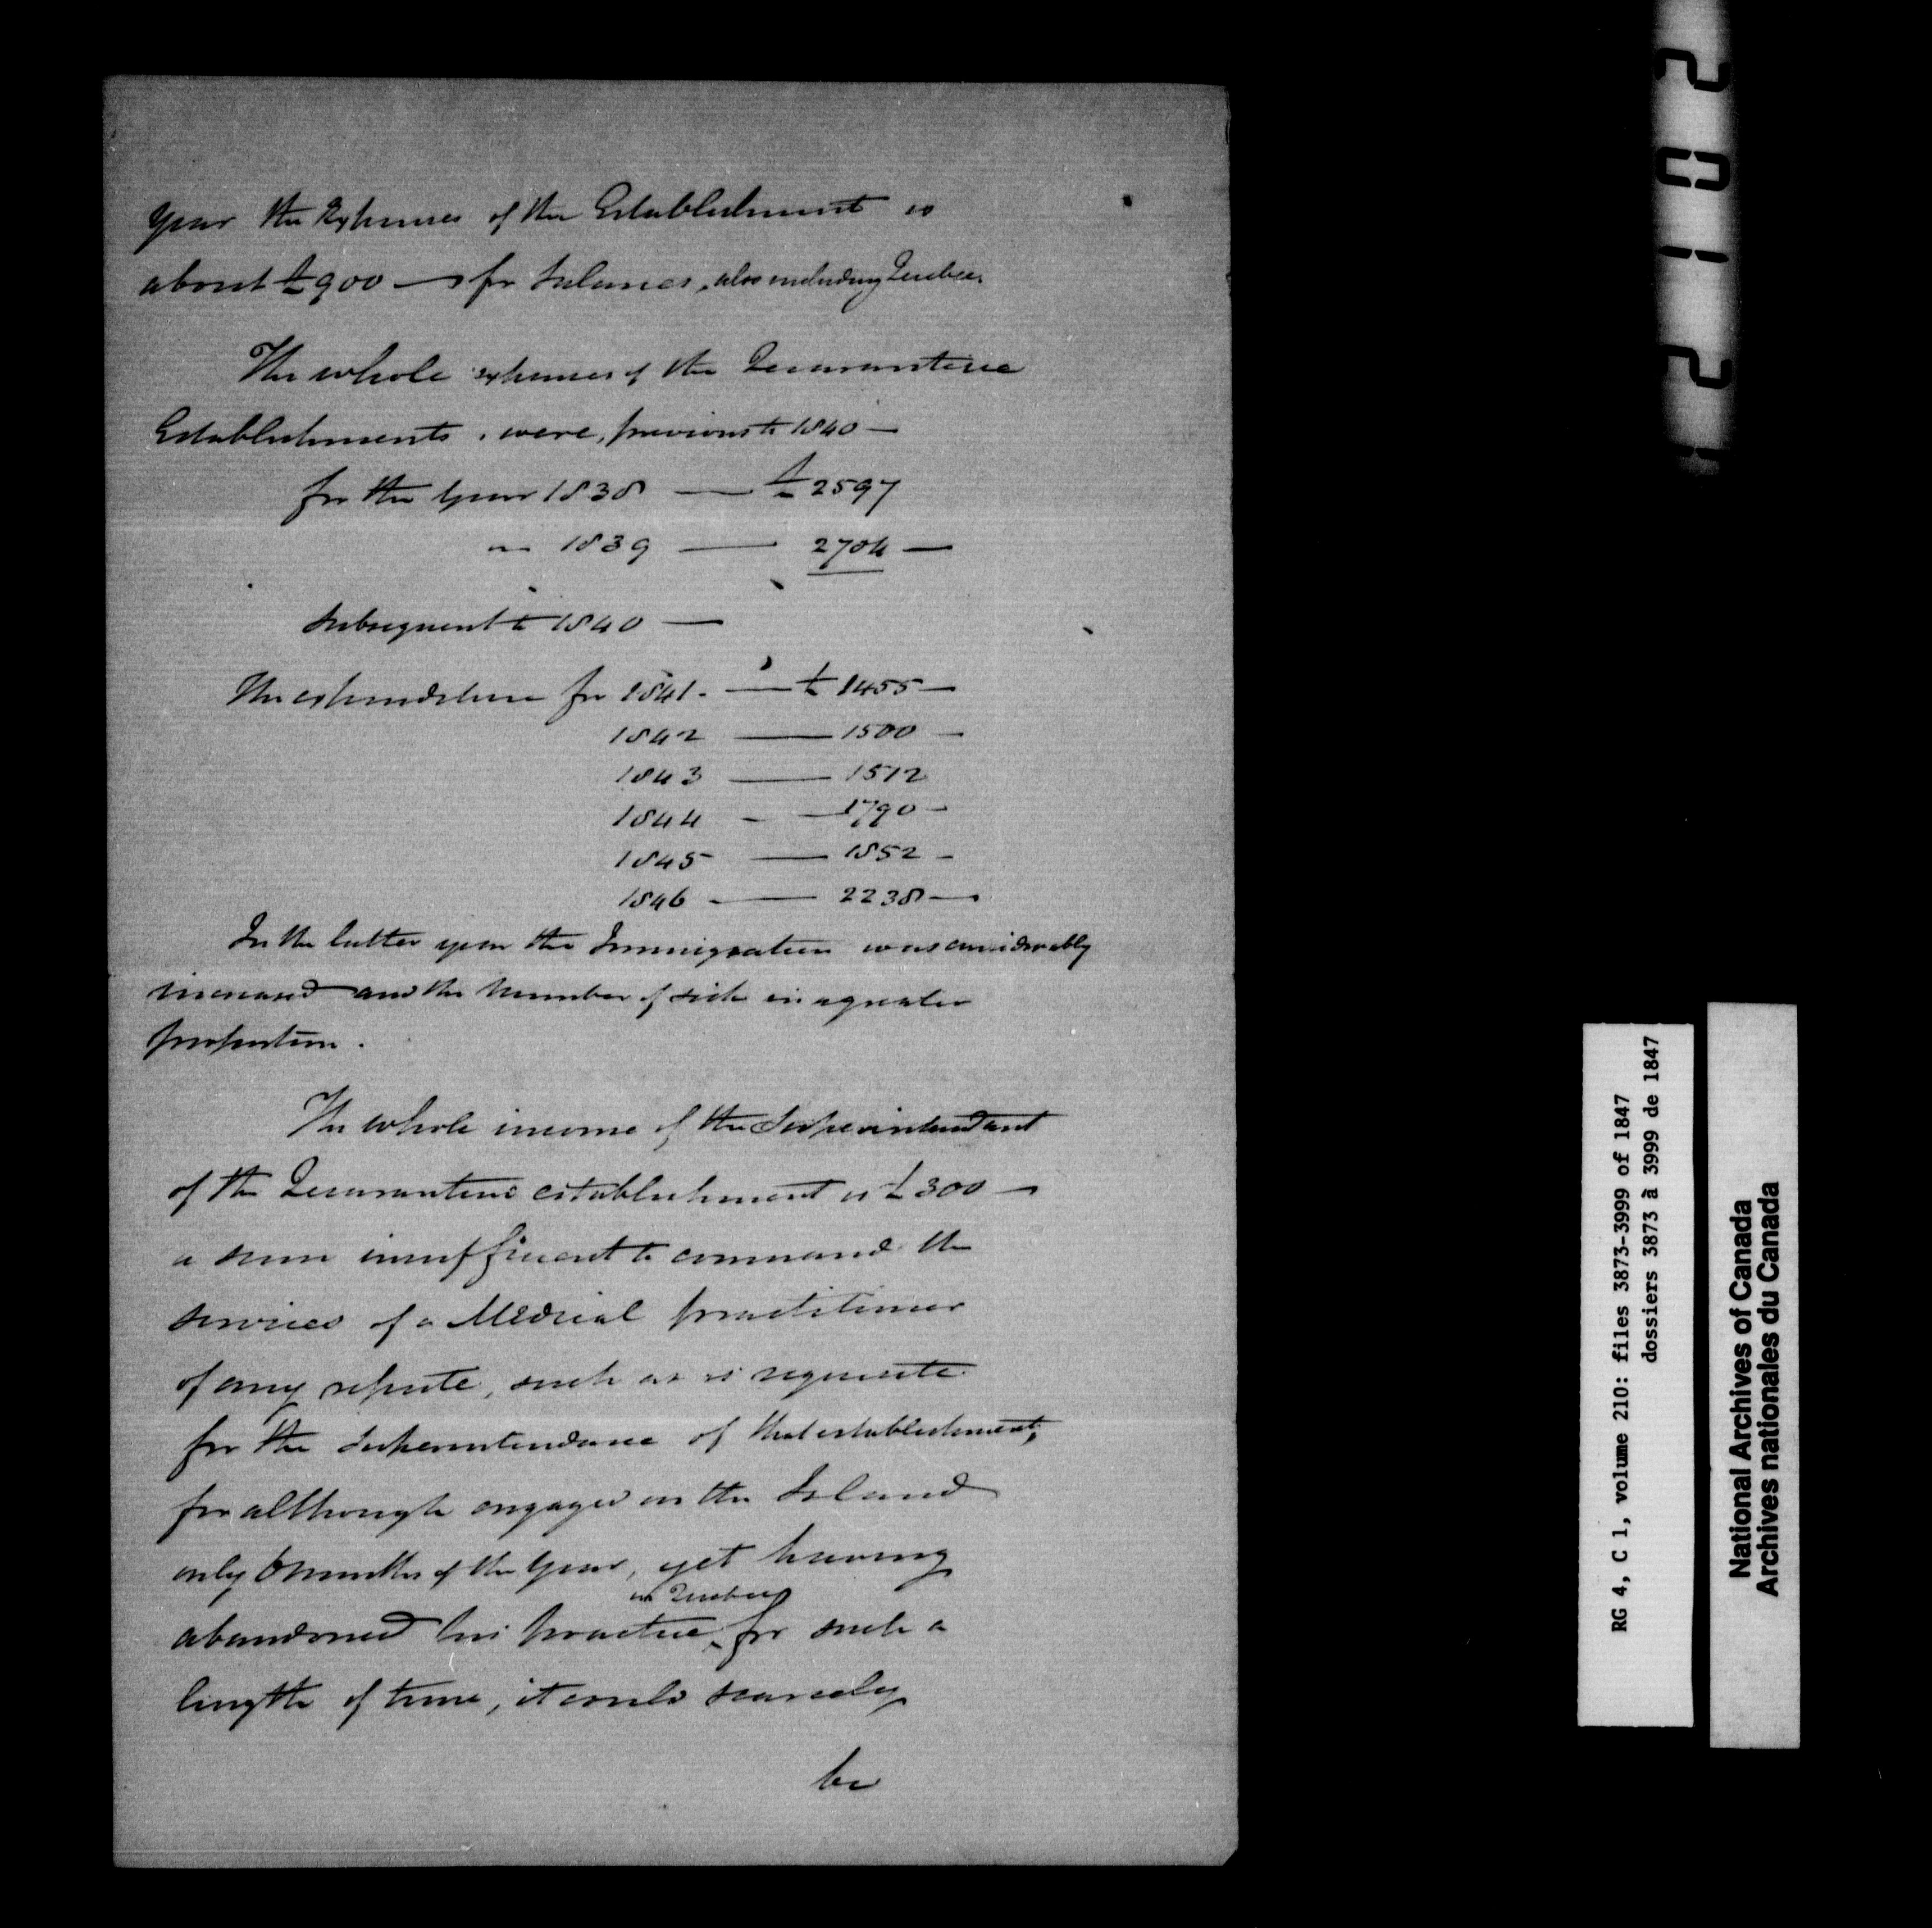 year the Expenses of the Establishment is
about £900 — for Salaries, also including Quebec.
The whole expenses of the Quarantine
Establishments, were, previous to 1840 —
for the year 1838 — £2597
" 1839 — 2704 —
Subsequent to 1840 —
The expenditure for 1841. — £1455 —
1842 — 1500 —
1843 — 1512
1844 - — 1790 —
1845 — 1852 -
1846 - — 2238 —
In the latter year the Immigration was considerably
increased and the number of sick in a greater
proportion.
The whole income of the Superintendant
of the Quarantine establishment is £300 —
a sum insufficient to command the
services of a Medical practitioner
of any repute, such as is requisite
for the Superintendance of that establishment;
for although engaged on the Island
only 6 months of the year, yet having
in Quebec
abandoned his practice ‸ for such a
length of time, it could scarcely
be
2012
RG 4, C 1, volume 210: files 3873-3999 of 1847
dossiers 3873 à 3999 de 1847
National Archives of Canada
Archives nationales du Canada